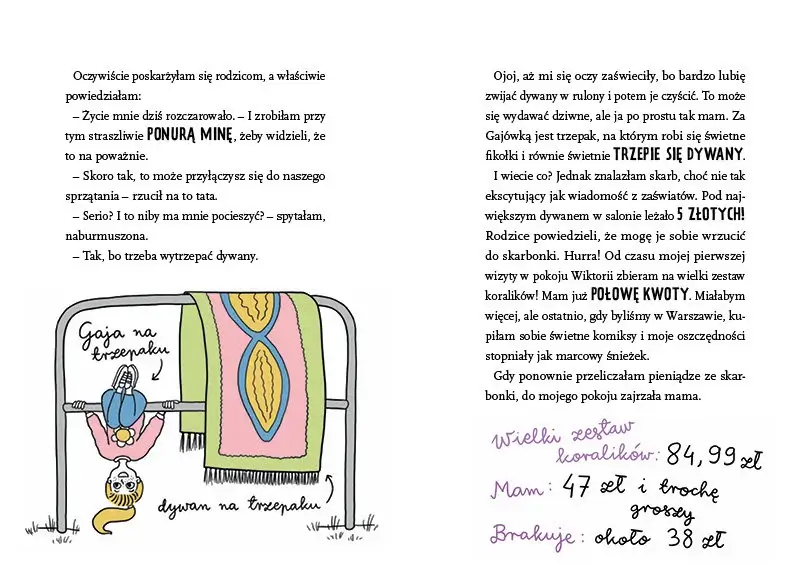 Oczywiście poskarżyłam się rodzicom, a właściwie
powiedziałam:
– Życie mnie dziś rozczarowało. – I zrobiłam przy
tym straszliwie PONURĄ MINĘ, żeby widzieli, że
to na poważnie.
– Skoro tak, to może przyłączysz się do naszego
sprzątania – rzucił na to tata.
– Serio? I to niby ma mnie pocieszyć? – spytałam,
naburmuszona.
– Tak, bo trzeba wytrzepać dywany.
Gaja na
trzepaku
dywan na trzepaku
Ojoj, aż mi się oczy zaświeciły, bo bardzo lubię
zwijać dywany w rulony i potem je czyścić. To może
się wydawać dziwne, ale ja po prostu tak mam. Za
Gajówką jest trzepak, na którym robi się świetne
fikołki i równie świetnie TRZEPIE SIĘ DYWANY.
I wiecie co? Jednak znalazłam skarb, choć nie tak
ekscytujący jak wiadomość z zaświatów. Pod naj-
większym dywanem w salonie leżało 5 ZŁOTYCH!
Rodzice powiedzieli, że mogę je sobie wrzucić
do skarbonki. Hurra! Od czasu mojej pierwszej
wizyty w pokoju Wiktorii zbieram na wielki zestaw
koralików! Mam już POŁOWĘ KWOTY. Miałabym
więcej, ale ostatnio, gdy byliśmy w Warszawie, ku-
piłam sobie świetne komiksy i moje oszczędności
stopniały jak marcowy śnieżek.
Gdy ponownie przeliczałam pieniądze ze skar-
bonki, do mojego pokoju zajrzała mama.
Wielki zestaw
koralików: 84,99 zł
Mam: 47 zł i trochę
groszy
Brakuje: około 38 zł